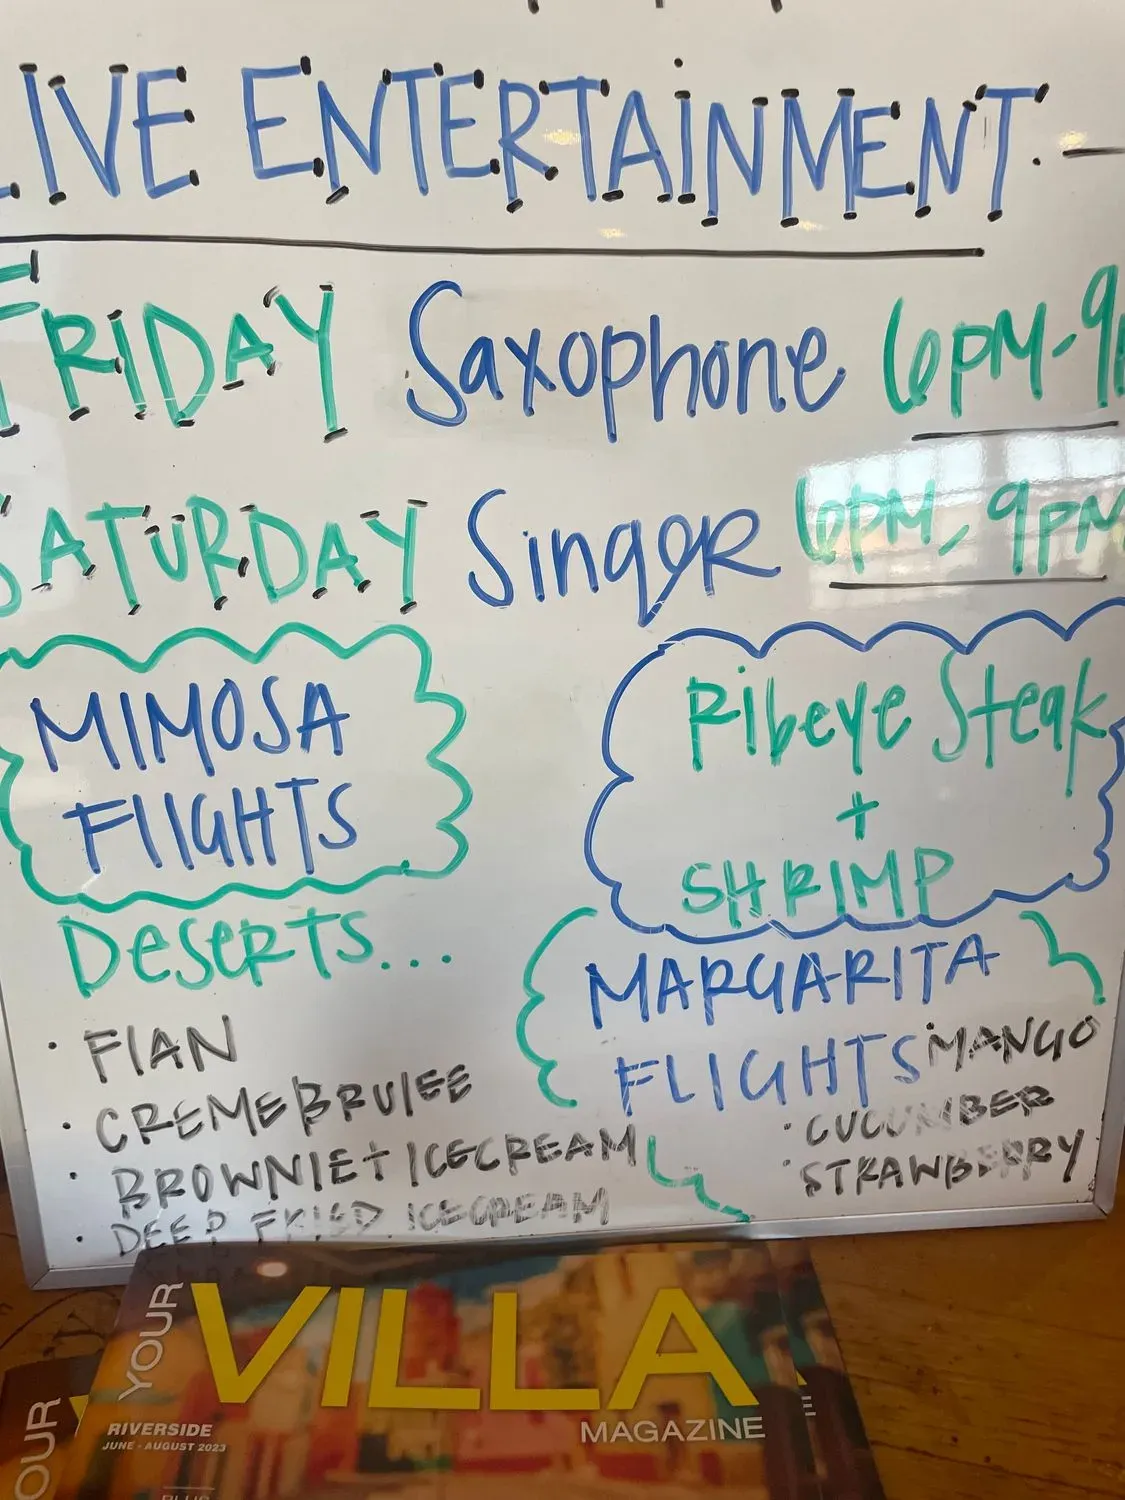 LIVE ENTERTAINMENT.
FRIDAY Saxophone 6PM-9
SATURDAY Singer 6PM, 9PM
MIMOSA
FLIGHTS
Ribeye Steak
+
SHRIMP
DESERTS...
• FLAN
• CREME BRULEE
• BROWNIE + ICECREAM
• DEEP FRIED ICECREAM
MARGARITA
FLIGHTS • MANGO
• CUCUMBER
• STRAWBERRY
YOUR
VILLA
MAGAZINE
RIVERSIDE
JUNE - AUGUST 2023
PLUS
YOUR